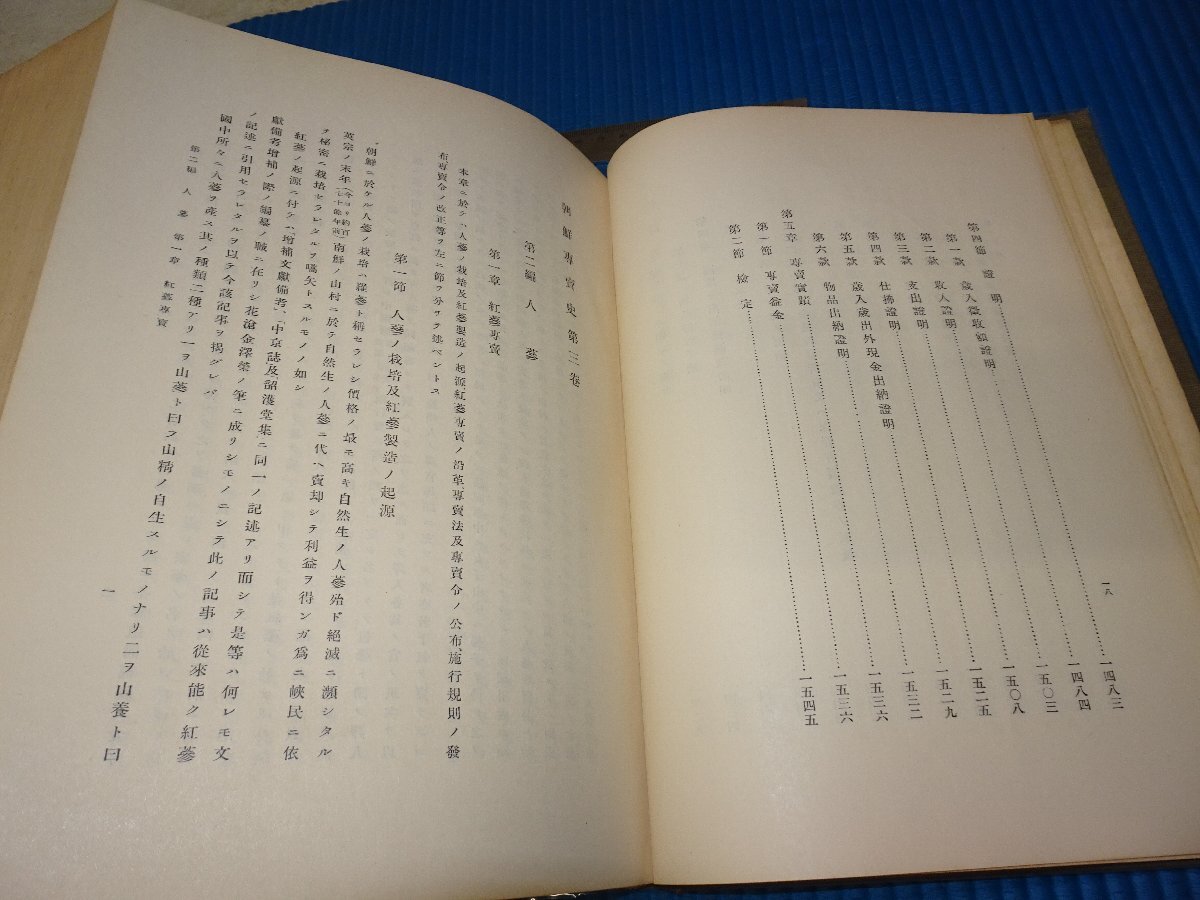 一八
第四節 證明
第一款 歲入徵收額證明
第二款 收入證明
第三款 支出證明
第四款 仕拂證明
第五款 歲入歲出外現金出納證明
第六款 物品出納證明
第五章 專賣實蹟
第一節 專賣益金
第二節 檢定
一四八三
一四八四
一五〇三
一五〇八
一五二五
一五二九
一五三二
一五三六
一五三六
一五四五
朝鮮專賣史第三卷
第二編 人蔘
第一章 紅蔘專賣
本章ニ於テハ人蔘ノ栽培及紅蔘製造ノ起源、紅蔘專賣ノ沿革專賣法及專賣令ノ公布、施行規則ノ發
布專賣令ノ改正等ヲ左ニ節ヲ分ツテ述ベントス
第一節 人蔘ノ栽培及紅蔘製造ノ起源
朝鮮ニ於ケル人蔘ノ栽培ハ羅蔘ト稱セラレシ價格ノ最モ高キ自然生ノ人蔘殆ド絕滅ニ瀕シタル
英宗ノ末年(今ヨリ約百七十餘年前)南鮮ノ山村ニ於テ自然生ノ人蔘ニ代ヘ賣却シテ利益ヲ得ンガ爲ニ峽民ニ依
ヲ秘密ニ栽培セラレタルヲ嚆矢トスルモノノ如シ
紅蔘ノ起源ニ付テハ「增補文獻備考」、「中京誌及韶濩堂集ニ同一ノ記述アリ而シテ是等ハ何レモ文
獻備考增補ノ際ノ編纂ノ職ニ在リシ花滄金澤榮ノ筆ニ成リシモノニシテ此ノ記事ハ從來能ク紅蔘
ノ記述ニ引用セラレタルヲ以テ今該記事ヲ揭グレバ
國中所々ニ人蔘ヲ產ス其ノ種類二種アリ一ヲ山蔘ト曰フ山精ノ自生スルモノナリ二ヲ山養ト曰
第二編 人蔘 第一章 紅蔘專賣
一